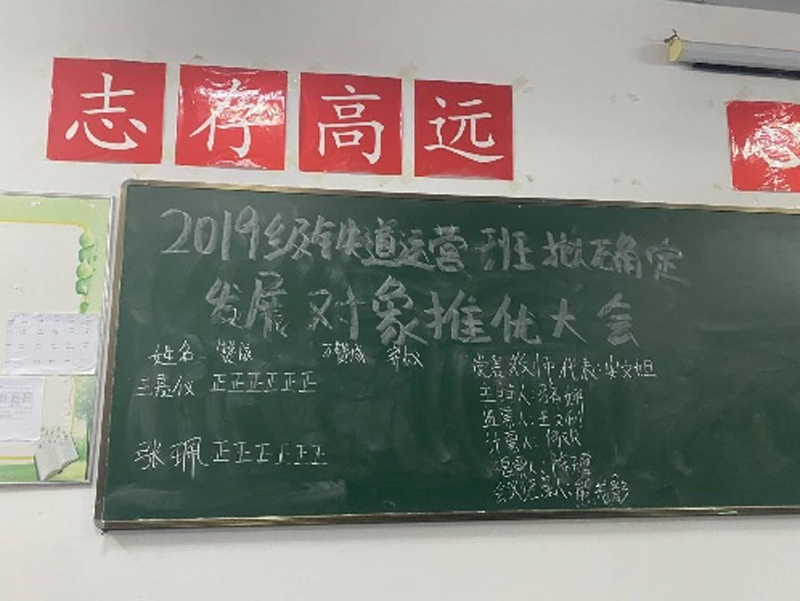 志存高远
2019级铁道运营班拟确定
发展对象推优大会
姓名 赞成 不赞成 弃权
王嘉仪 正正正正正正
张珮 正正正正正正
党员教师代表:
主持人:
监票人:王
计票人:
唱票人:
会议记录人: